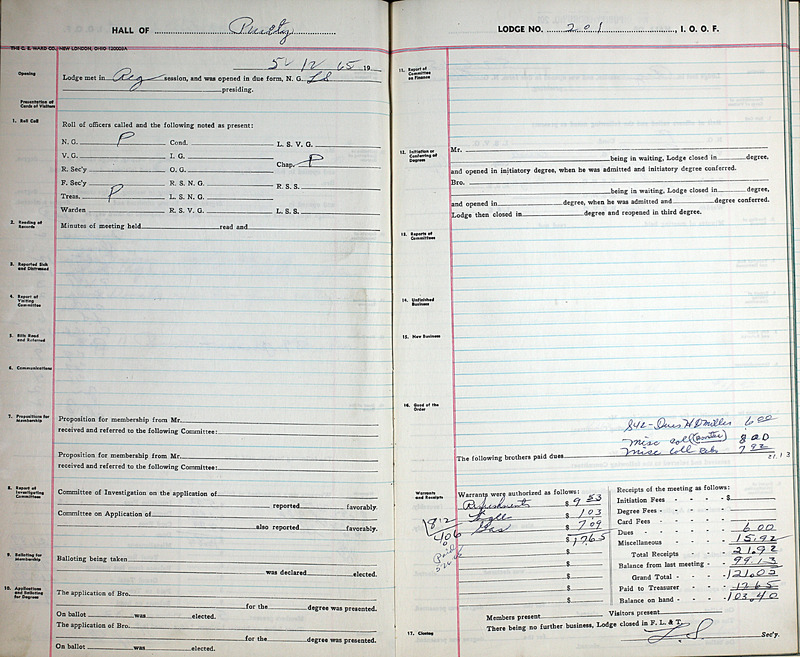 HALL OF Purity
THE C. E. WARD CO., NEW LONDON, OHIO
5 12 65 19
Opening
Lodge met in Reg session, and was opened in due form, N. G. LS
presiding.
Presentation of Cards of Visitors
1. Roll Call
Roll of officers called and the following noted as present:
N. G. P Cond. L. S. V. G.
V. G. I. G. Chap. P
R. Sec'y O. G.
F. Sec'y R. S. N. G. R. S. S.
Treas. P L. S. N. G.
Warden R. S. V. G. L. S. S.
2. Reading of Records
Minutes of meeting held read and
3. Reported Sick and Distressed
4. Report of Visiting Committee
5. Bills Read and Referred
6. Communications
7. Propositions for Membership
Proposition for membership from Mr.
received and referred to the following Committee:
Proposition for membership from Mr.
received and referred to the following Committee:
8. Report of Investigating Committees
Committee of Investigation on the application of
reported favorably.
Committee on Application of
also reported favorably.
9. Balloting for Membership
Balloting being taken
was declared elected.
10. Applications and Balloting for Degrees
The application of Bro.
for the degree was presented.
On ballot was elected.
The application of Bro.
for the degree was presented.
On ballot was elected.
LODGE NO. 201, I. O. O. F.
11. Report of Committee on Finance
12. Initiation or Conferring of Degrees
Mr.
being in waiting, Lodge closed in degree,
and opened in initiatory degree, when he was admitted and initiatory degree conferred.
Bro.
being in waiting, Lodge closed in degree,
and opened in degree, when he was admitted and degree conferred.
Lodge then closed in degree and reopened in third degree.
13. Reports of Committees
14. Unfinished Business
15. New Business
16. Good of the Order
842- Dues H D Miller 6 00
Misc coll 8 00
Misc coll 7 92
The following brothers paid dues
Warrants and Receipts
Warrants were authorized as follows:
Refreshments $ 9 53
$ 1 03
Gas $ 7 09
$ 17 65
$
$
$
$
Receipts of the meeting as follows:
Initiation Fees - - - $
Degree Fees - - -
Card Fees - - -
Dues - - - 6.00
Miscellaneous - - 15.92
Total Receipts - - 21.92
Balance from last meeting - 99.13
Grand Total - - 121.05
Paid to Treasurer - - 17.65
Balance on hand - - 103.40
Members present Visitors present
17. Closing
There being no further business, Lodge closed in F. L. & T.
L.S. Sec'y.